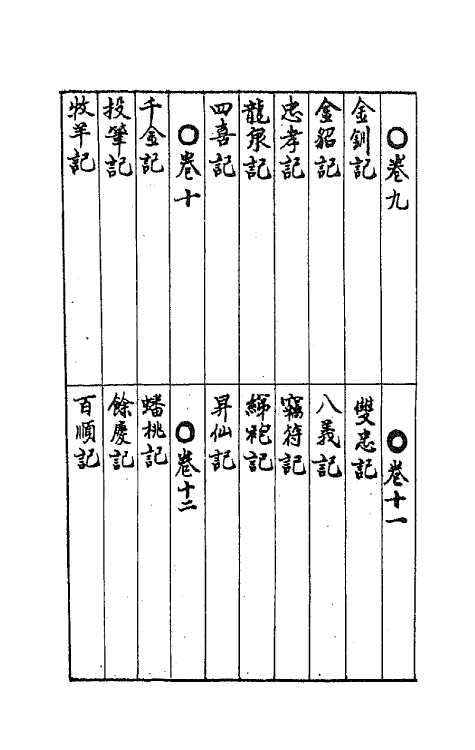 〇卷九
金釧記
金貂記
忠孝記
龍泉記
四喜記
〇卷十
千金記
投筆記
牧羊記
〇卷十一
雙忠記
八義記
竊符記
綈袍記
昇仙記
〇卷十二
蟠桃記
餘慶記
百順記